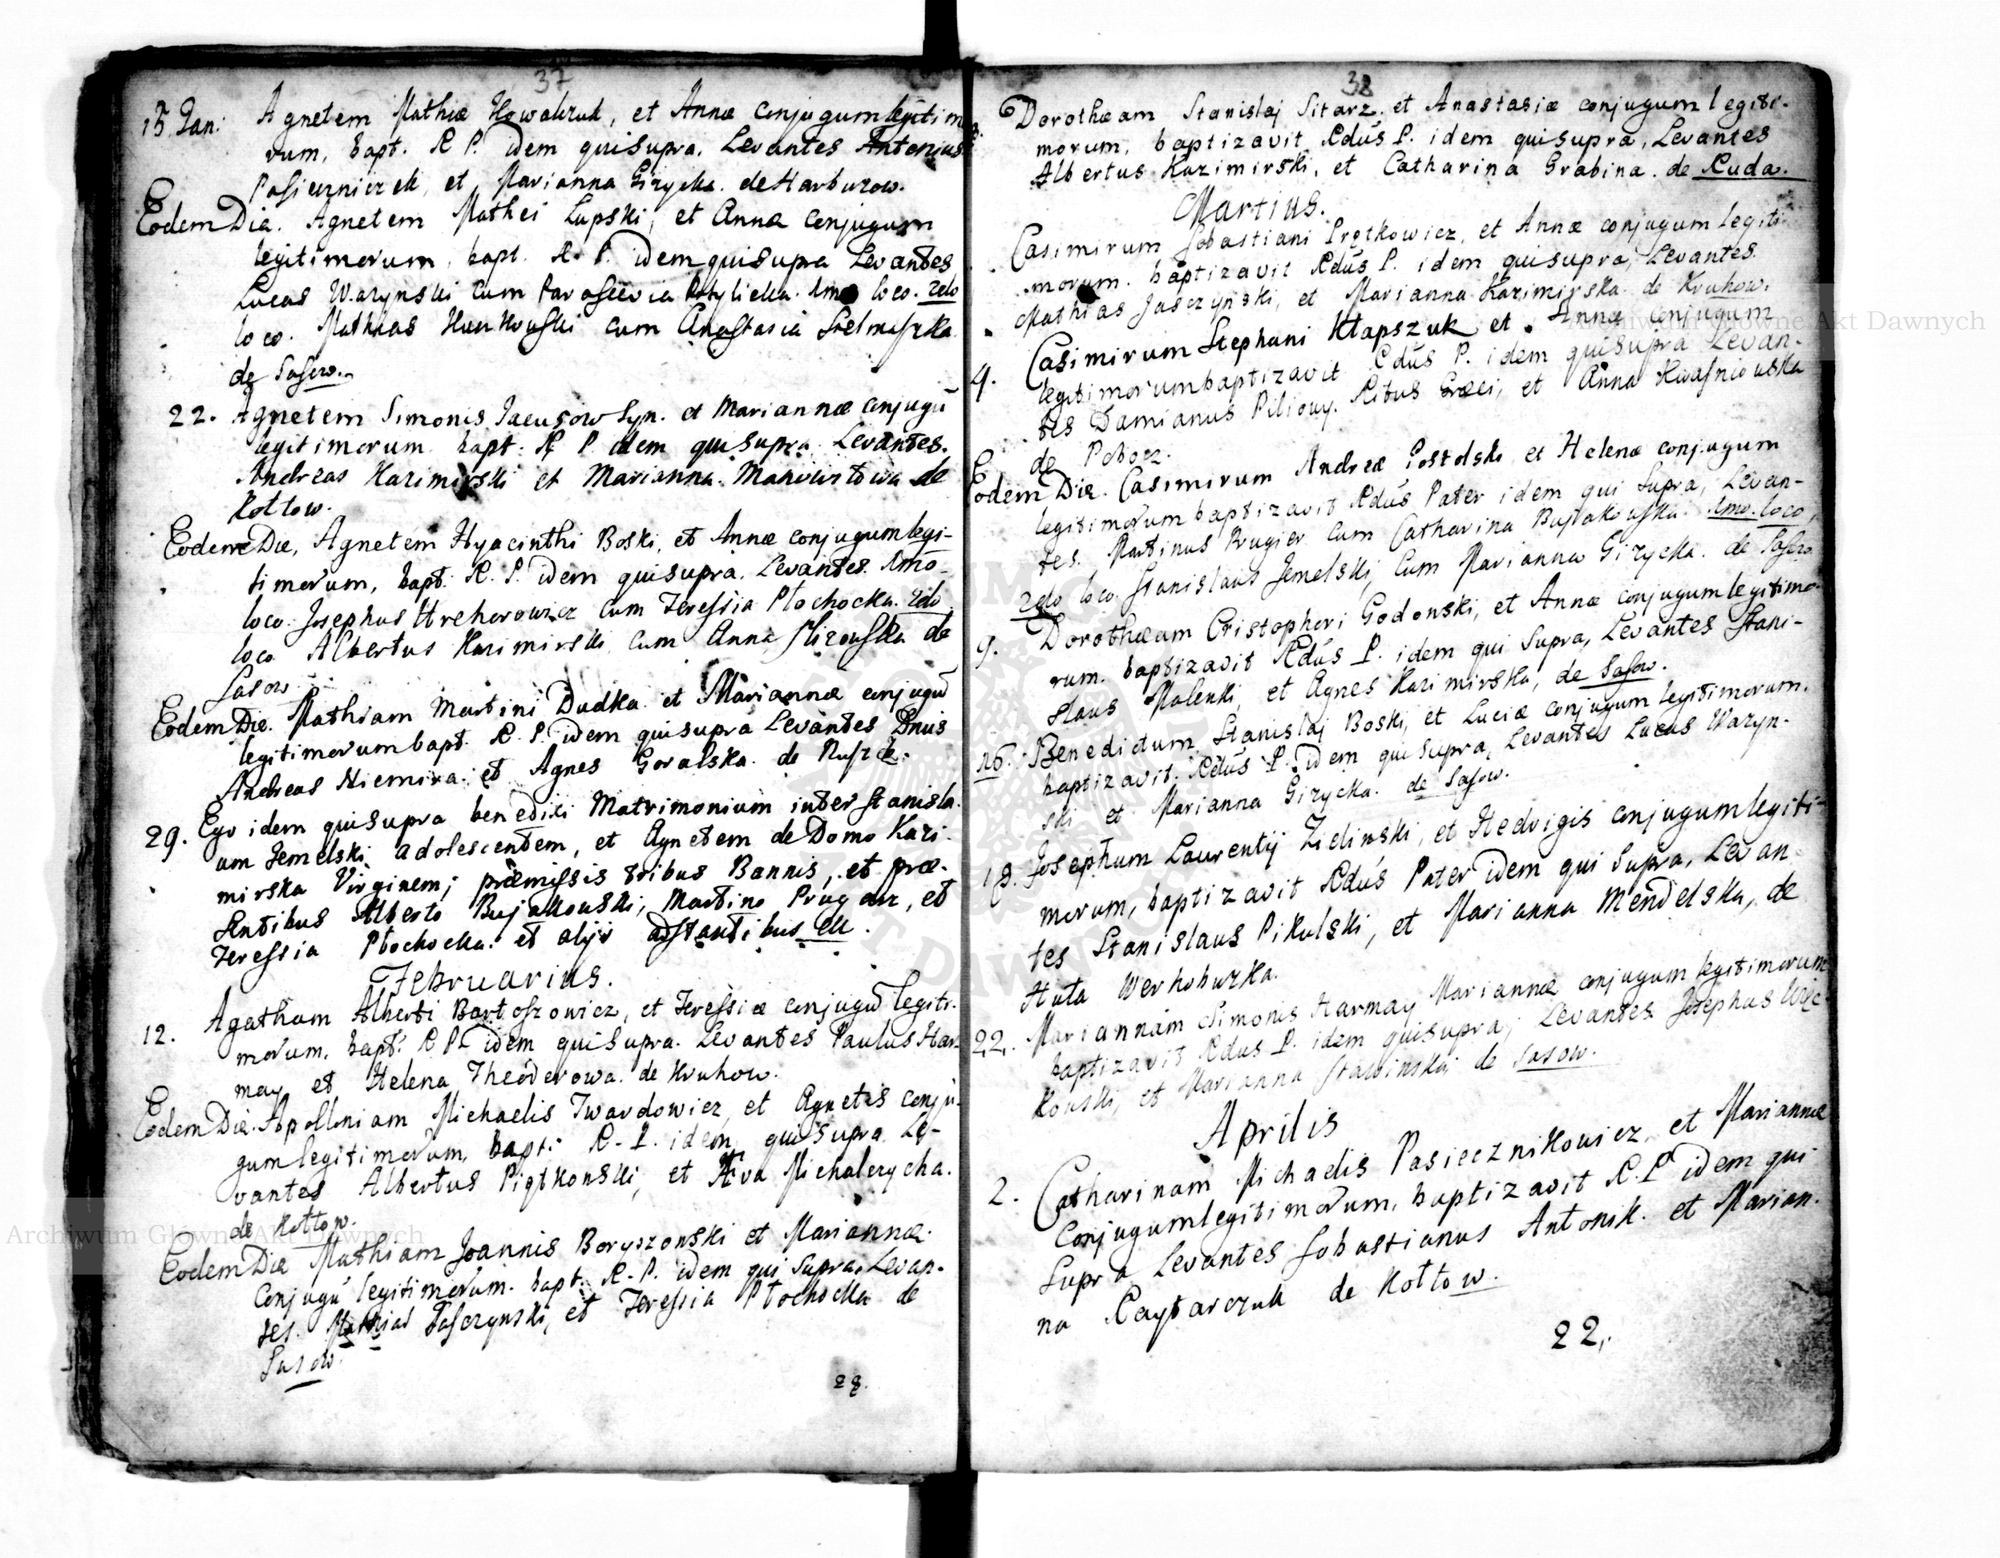 37
15 Jan: Agnetem Mathiæ Nowakzuk, et Annæ conjugum legitimo
rum, bapt. R P. idem qui supra. Levantes Antonius
Pasieczniczek, et Marianna Gizycka. de Harbuzow.
Eodem Die. Agnetem Mathei Lupski, et Annæ conjugum
legitimorum, bapt. R. P. idem qui supra Levantes
Lucas Wazynski cum Parascevia loco. 2do
loco. Mathias cum Anastasia Stelmaszka
de Sasow.
22. Agnetem Simonis Syn. et Mariannæ conjugū
legitimorum bapt. R P idem qui supra Levantes.
Andreas Kazimirski et Marianna de
Kołtow.
Eodem Die, Agnetem Hyacinthi Boski, et Annæ conjugum legi-
timorum, bapt. R. P. idem qui supra. Levantes 1mo
loco. Josephus Hrehorowicz cum Teressia Płochocka. 2do
loco Albertus Kazimirski, cum Anna de
Sasow
Eodem Die. Mathiam Martini Dudka et Mariannæ conjugū
legitimorum bapt. R. P. idem qui supra Levantes Dnus
Andreas Niemira. et Agnes Goralska. de
29. Ego idem qui supra benedixi Matrimonium inter Stanisla
um Jemelski adolescentem, et Agnetem de Domo Kazi-
mirska Virginem; præmissis tribus Bannis, et præ-
sentibus Alberto Bujakouski, Martino Prugar, et
Teressia Płochocka. et alijs adstantibus etc.
Februarius.
12. Agatham Alberti Bartoszowicz, et Teressiæ conjugū legiti-
morum, bapt: R P. idem qui supra. Levantes Paulus Har
may et Helena Theoderowa. de Kruhow.
Eodem Die. Apolloniam Michaelis Twardowicz, et Agnetis conju-
gum legitimorum, bapt: R. P. idem qui supra Le-
vantes Albertus Piątkonski, et Æva Michalczycha.
de Kołtow.
Eodem Die Mathiam Joannis Boryszonski et Mariannæ.
Conjugū legitimorum. bapt. R. P. idem qui supra. Levan-
tes. Mathias Jasczynski, et Teressia Płochocka de
Sasow.
29.
38
Dorotheam Stanislaj Sitarz. et Anastasiæ conjugum legiti-
morum, baptizavit Rdūs P. idem qui supra, Levantes
Albertus Kazimirski, et Catharina Grabina. de Ruda.
Martius.
Casimirum Sebastiani Prętkowicz, et Annæ conjugum legiti
morum. baptizavit Rdūs P. idem qui supra, Levantes
Mathias Jasczynski, et Marianna Kazimirska de Kruhow.
4. Casimirum Stephani Kłapszuk et Annæ conjugum
legitimorum baptizavit Rdūs P. idem qui supra Levan-
tes Damianus Piliouy. Ritus Græci, et Anna Kwasniouska
de Pobocz.
Eodem Die. Casimirum Andreæ Postolski et Helenæ conjugum
legitimorum baptizavit Rdūs Pater idem qui supra, Levan-
tes. Martinus Prugier cum Catharina Bujakouska. 1mo. loco,
2do loco. Stanislaus Jemelski, cum Marianna Gizycka. de Sasow
9. Dorotheam Cristopheri Godonski, et Annæ conjugum legitimo
rum. baptizavit Rdūs P. idem qui supra, Levantes Stani-
slaus Malenki, et Agnes Kazimirska, de Sasow.
16. Benedictum, Stanislaj Boski, et Luciæ conjugum legitimorum.
baptizavit. Rdūs P. idem qui supra, Levantes Lucas Wazyn-
ski et Marianna Gizycka. de Sasow.
18. Josephum Laurentij Zielinski, et Hedvigis conjugum legiti-
morum, baptizavit Rdūs Pater idem qui supra, Levan
tes Stanislaus Pikulski, et Marianna Mendelska, de
Huta Werhobuzka.
22. Mariannam Simonis Harmay Mariannæ conjugum legitimorum
baptizavit Rdus P. idem qui supra, Levantes Josephus Wyc-
kouski, et Marianna Stawinska, de Sasow.
Aprilis
2. Catharinam Michaelis Pasiecznikowicz, et Mariannæ
Conjugum legitimorum, baptizavit R. P idem qui
supra Levantes Sobastianus Antonik. et Marian.
na Raytarczuk de Kołtow.
22.
Archiwum Główne Akt Dawnych
Archiwum Główne Akt Dawnych